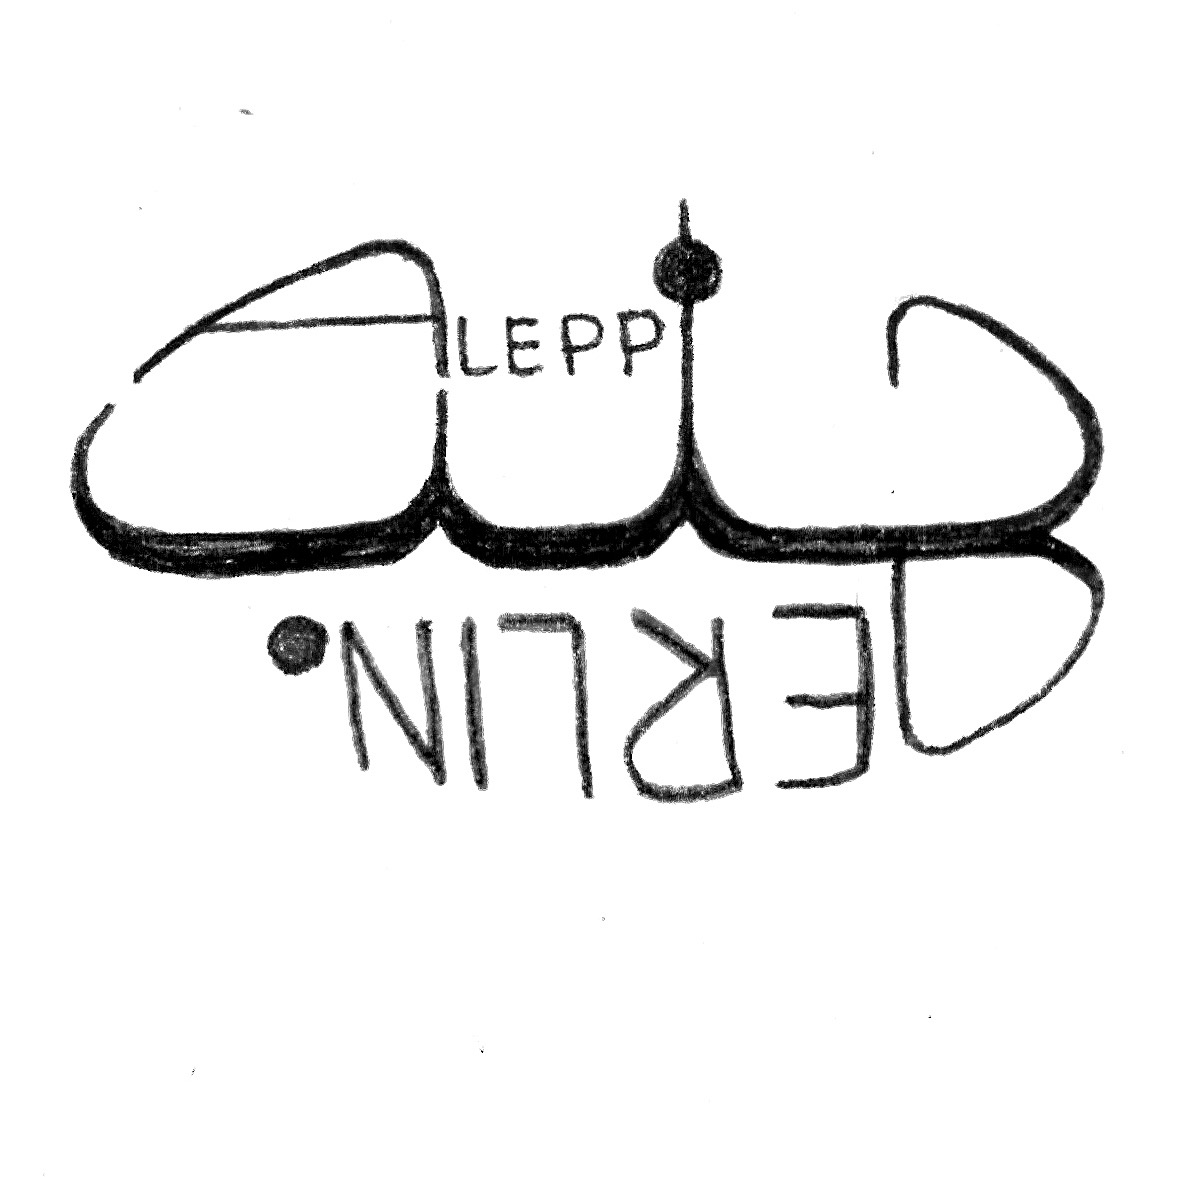 ALEPPO
حلب
BERLIN